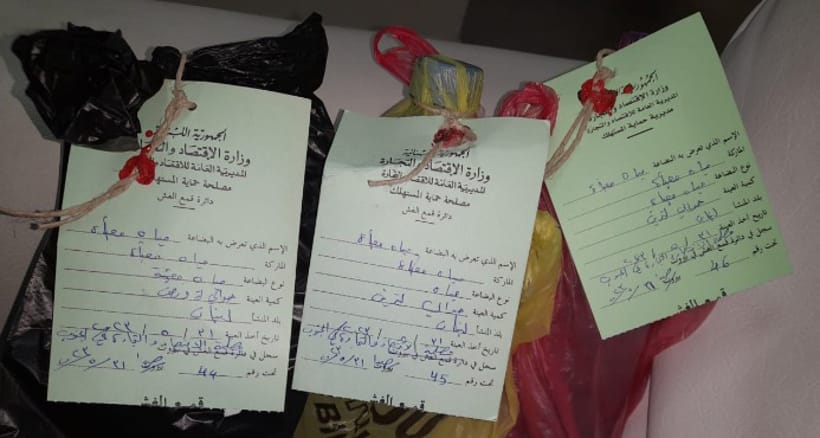 الجمهورية
وزارة الاقتصاد والتجارة
المديرية العامة للاقتصاد
مصلحة حماية المستهلك
دائرة قمع الغش
الإسم الذي تعرض به البضاعة مياه معبأة
الماركة مياه معبأة
نوع البضاعة مياه معبأة
كمية العينة حوالي
بلد المنشأ لبنان
تاريخ أخذ العينة ٣١ / ٥ / ٢٣
سجل في دائرة قمع الغش في بيروت
تحت رقم 44
قمع الغش
الجمهورية اللبنانية
وزارة الاقتصاد والتجارة
المديرية العامة للاقتصاد والتجارة
مصلحة حماية المستهلك
دائرة قمع الغش
الإسم الذي تعرض به البضاعة مياه معبأة
الماركة مياه معبأة
نوع البضاعة مياه
كمية العينة حوالي لترين
بلد المنشأ لبنان
تاريخ أخذ العينة ٣١
سجل في دائرة قمع الغش في بيروت
تحت رقم 45
قمع الغش
الجمهورية اللبنانية
وزارة الاقتصاد والتجارة
المديرية العامة للاقتصاد والتجارة
مديرية حماية المستهلك
الإسم الذي تعرض به البضاعة مياه معبأة
الماركة مياه معبأة
نوع البضاعة مياه معبأة
كمية العينة حوالي لترين
بلد المنشأ لبنان
تاريخ أخذ العينة ٣١
سجل في دائرة قمع الغش في بيروت
تحت رقم 46
قمع الغش